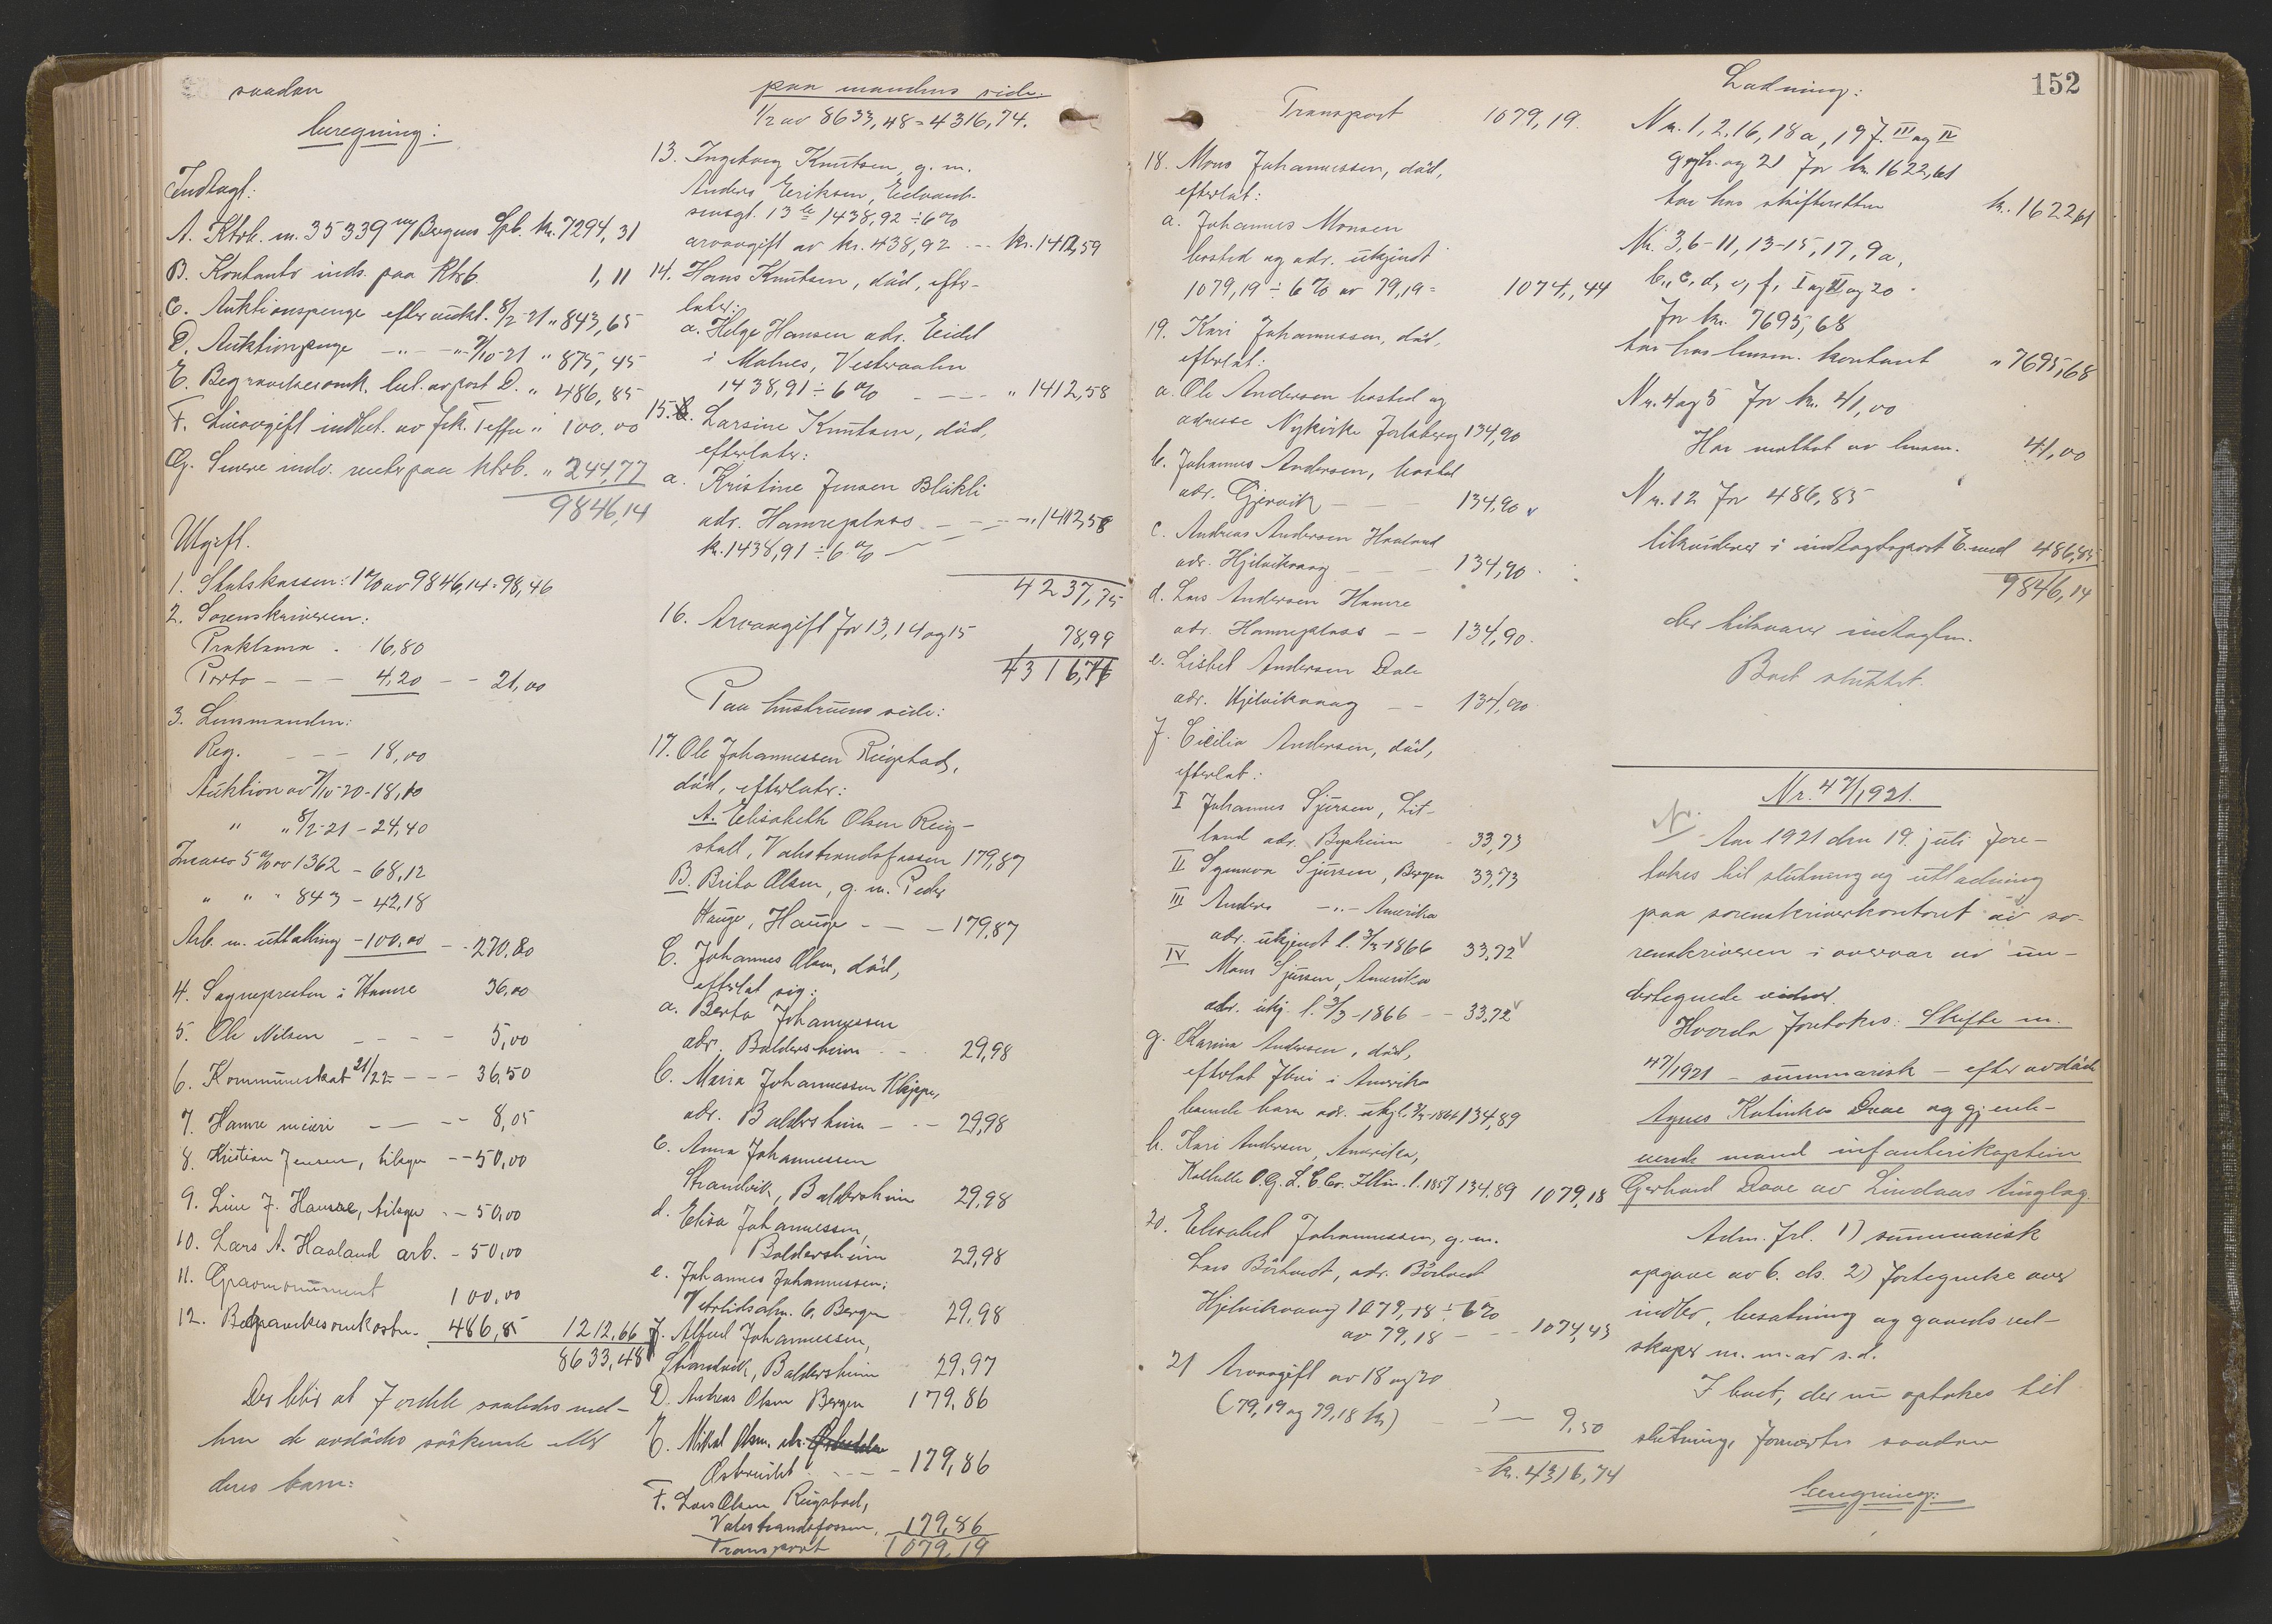 saadan
beregning:
Indtægt:
A. Ktrb. nr. 35339 Bergens Spb. kr. 7294,31
B. Kontanter inds. paa ktrb. 1,11
C. Auktionspenge efter aukt. 8/2-21 " 843,65
D. Auktionspenge -"- -"- 7/10-21 " 875,45
E. Begravelsesomk. bet. av post D. " 486,85
F. indbet. av " 100,00
G. Senere indv. renter paa ktrb. " 244,77
9846,14
Utgift.
1. Statskassen: 1% av 9846,14 = 98,46
2. Sorenskriveren:
Proklama - 16,80
Porto - - - 4,20 - - 21,00
3. Lensmanden:
Reg. - - 18,00
Auktion av 7/10-20 - 18,10
" " 8/2-21 - 24,40
Incasso 5% av 1362 - 68,12
" " " 843 - 42,18
Arb. m. uttælling - 100,00 - - 270,80
4. Sognepresten i Hamre 36,00
5. Ole Nilsen - - - - 5,00
6. Kommuneskat 21/22 - - - 36,50
7. Hamre meieri - - - - 8,05
8. Kristian Jensen, tilsyn - - 50,00
9. Line J. Hamre, tilsyn - - 50,00
10. Lars A. Haaland arb. - 50,00
11. Gravmonument 100,00
12. Begravelsesomkostn. 486,85 1212,66
8633,48
Der blir at fordele saaledes mel-
lem de avdödes söskende eller
deres barn:
paa mandens side.
1/2 av 8633,48 = 4316,74.
13. Ingeborg Knutsen, g. m.
Anders Eriksen,
13 1438,92 ÷ 6%
arveavgift av kr. 438,92 - - kr. 1412,59
14. Hans Knutsen, död, efter-
later:
a. Helge Hansen adr. Eidet
i Malnes, Vesteraalen
1438,91 ÷ 6% - - - - " 1412,58
15. Larsine Knutsen, död,
efterlater:
a. Kristine Jensen Blekli
adr. Hamreplass - - - - " 1412,58
kr. 1438,91 ÷ 6%
4237,75
16. Arveavgift for 13, 14 og 15
78,99
4316,74
Paa hustruens side:
17. Ole Johannessen Reigstad,
död, efterlater:
A. Elisabeth Olsen Reig-
stad, Valestrandsfossen 179,87
B. Brita Olsen, g. m. Peder
Hauge, Hauge - - - 179,87
C. Johannes Olsen, död,
efterlat sig:
a. Berta Johannessen
adr. Baldersheim - - 29,98
b. Maria Johannessen
adr. Baldersheim - - - 29,98
c. Anna Johannessen
Strandvik, Baldersheim 29,98
d. Elisa Johannessen,
Baldersheim 29,98
e. Johannes Johannessen,
Vetrlidsalm. 6, Bergen 29,98
f. Alfred Johannessen,
Strandvik, Baldersheim 29,97
D. Andreas Olsen Bergen 179,86
E. Mikal Olsen
- - - - 179,86
F. Lars Olsen Reigstad,
Valestrandsfossen, 179,86
Transport 1079,19
152
Transport 1079,19.
18. Mons Johannessen, död,
efterlat:
a. Johannes Monsen
bosted og adr. ukjendt
1079,19 ÷ 6% av 79,19 = 1074,44
19. Kari Johannessen, död,
efterlat:
a. Ole Andersen bosted og
adresse Nykirke Jarlsberg 134,90
b. Johannes Andersen, bosted
adr. Gjervik - - - 134,90
c. Andreas Andersen Haaland
adr. Hjelvikvaag - - - 134,90
d. Lars Andersen Hamre
adr. Hamreplass - - 134,90
e. Lisbet Andersen Dale
adr. Hjelvikvaag - - 134,90
f. Cicilia Andersen, död,
efterlat:
I Johannes Sjursen, Lit-
land adr. Bysheim - 33,73
II Synneva Sjursen, Bergen 33,73
III Anders -"- Amerika
adr. ukjendt l. 3/3-1866 33,72
IV Mons Sjursen, Amerika
adr. ukj. l. 3/3-1866 - - 33,72
g. Karina Andersen, död,
efterlat flere i Amerika
boende barn adr. ukj. l. 3/3-1866 134,89
h. Kari Andersen, Amerika,
Illin. l. 1857 134,89 1079,18
20. Elisabet Johannessen, g. m.
Lars Börtveit, adr. Börtveit
Hjelvikvaag 1079,18 ÷ 6%
av 79,18 - - - 1074,43
21 Arveavgift av 18 og 20
(79,19 og 79,18 kr) - - - 9,50
kr. 4316,74
Ladning:
Nr. 1, 2, 16, 18a, 19 f. III og IV
g og h. og 21 for kr. 1622,61
tas hos skifteretten kr. 1622,61
Nr. 3, 6-11, 13-15, 17, 9a,
b, c, d, e, f, I og II og 20
for kr. 7695,68
tas hos lensm. kontant " 7695,68
Nr. 4 og 5 for kr. 41,00
Har mottat av lensm. 41,00
Nr. 12 for 486,85
likvideres i indtægtspost E. med 486,85
9846,14
der tilsvarer indtægten.
Boet sluttet.
Nr. 47/1921.
Aar 1921 den 19. juli fore-
tokes til slutning og utladning
paa sorenskriverkontoret av so-
renskriveren i overvær av un-
dertegnede vidner.
Hvorda foretokes: Skifte nr.
47/1921 - summarisk - efter avdöde
Agnes Katinka Daae og gjenle-
vende mand infanterikaptein
Gerhard Daae av Lindaas tinglag.
Adm. frl. 1) summarisk
opgave av 6. ds. 2) fortegnelse over
indbo, besætning og gaardsred-
skaper m. m. av s. d.
I boet, der nu optokes til
slutning, forfattes saadan
beregning: